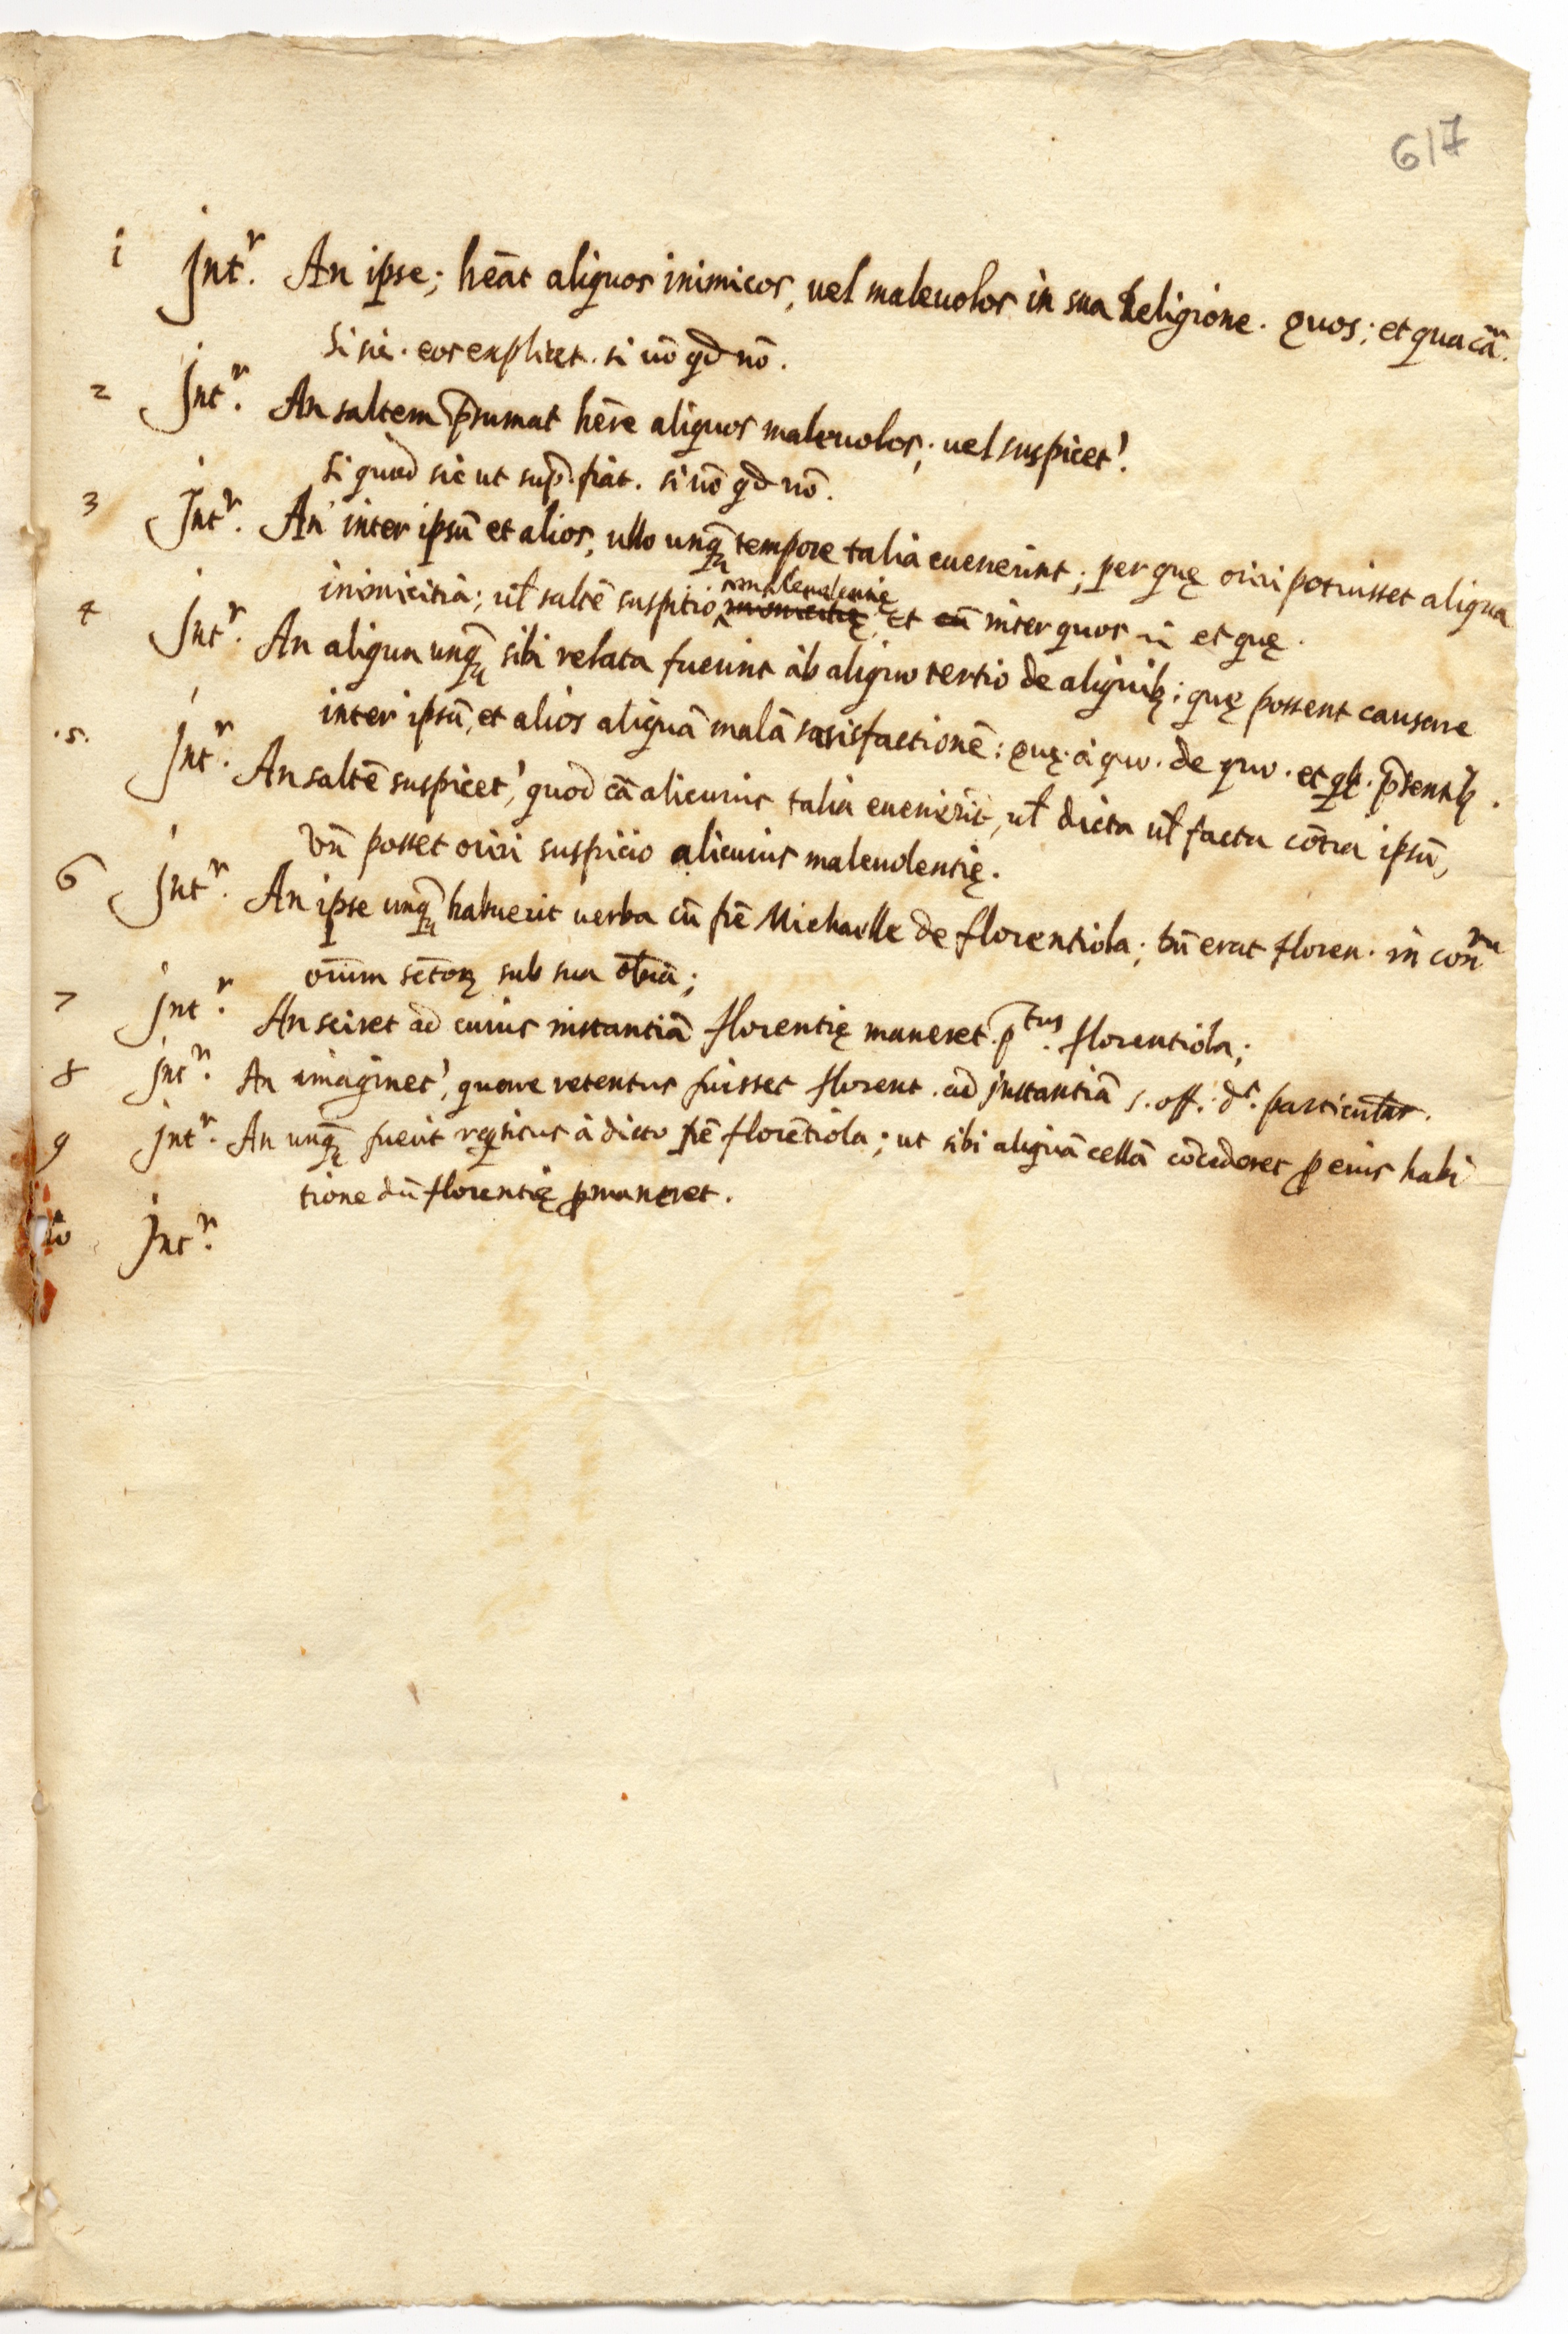 617
1 Int.r An ipse; hēat aliquos inimicos, uel maleuolos in sua Religione. quos; et qua cā.
si sic. eos explicet. si nō qd nō.
2 Int.r An saltem p̄sumat hēre aliquos maleuolos; uel suspicet'.
si quod sic ut sup. fiat. si nō qd nō.
3 Int.r An inter ipsū et alios, ullo unq̄ tempore talia euenerint; per quę oriri potuisset aliqua
inimicitia; ul̄ saltē suspitio maleuolentię inimicitię; et cū inter quos et quę.
4 Int.r An aliqua unq̄ sibi relata fuerint ab aliquo tertio de aliquibꝫ; quę possent causare
inter ipsū, et alios aliquā malā satisfactionē: quę. à quo. de quo. et qbꝫ. p̄sentibꝫ.
.5. Int.r An saltē suspicet', quod cā alicuius talia euenerīt, ul̄ dicta ul̄ facta cōtra ipsū,
vn̄ posset oriri suspicio alicuius maleuolentię.
6 Int.r An ipse unq̄ habuerit uerba cū frē Michaelle de florentiola; dū erat floren. in conu
oīum sctōꝝ sub sua ob̄ia;
7 Int.r An sciret ad cuius instantiā florentię maneret. p.tus florentiola;
8 Int.r An imaginet', quare retentus fuisset florent. ad instantiā s. off. d. particular.
9 Int.r An unq̄ fuerit reqsitus à dicto frē florētiola; ut sibi aliquā cellā cōcederet ꝓ eius habi
tione dū florentię ꝑmaneret.
10 Int.r